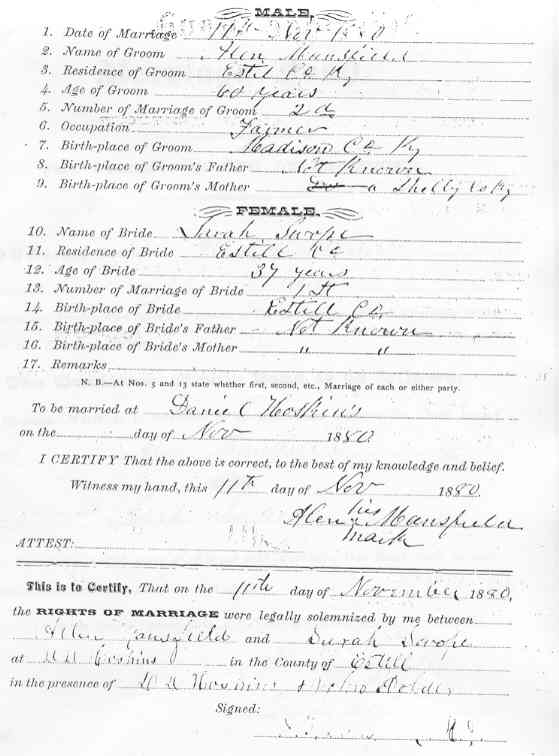 MALE.
1. Date of Marriage 11th Nov 1880
2. Name of Groom Alen Mansfield
3. Residence of Groom Estil Co Ky
4. Age of Groom 60 years
5. Number of Marriage of Groom 2d
6. Occupation Farmer
7. Birth-place of Groom Madison Co Ky
8. Birth-place of Groom's Father Not Known
9. Birth-place of Groom's Mother Shelby Co Ky
FEMALE.
10. Name of Bride Sarah
11. Residence of Bride Estill Co
12. Age of Bride 37 years
13. Number of Marriage of Bride 1st
14. Birth-place of Bride Estill Co,
15. Birth-place of Bride's Father Not Known
16. Birth-place of Bride's Mother " "
17. Remarks
N. B.—At Nos. 5 and 13 state whether first, second, etc., Marriage of each or either party.
To be married at Daniel Hoskins
on the day of Nov 1880
I CERTIFY That the above is correct, to the best of my knowledge and belief.
Witness my hand, this 11th day of Nov 1880.
his
Alen x Mansfield
mark
ATTEST:
This is to Certify, That on the 11th day of November 1880,
the RIGHTS OF MARRIAGE were legally solemnized by me between
Allen Mansfield and Sarah
at Hoskins in the County of Estill
in the presence of Hoskins
Signed: